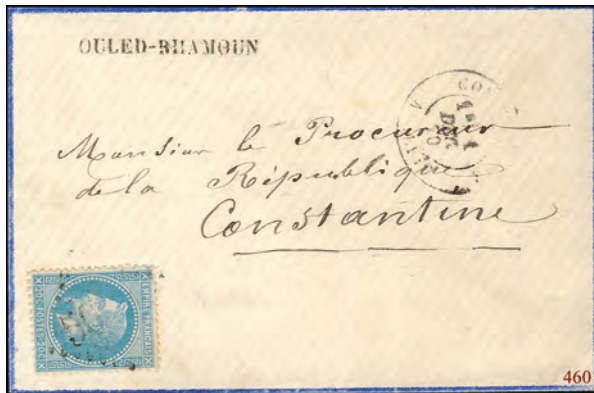 OULED-RHAMOUN
1
DEC
70
Monsieur le Procureur
de la République
Constantine
EMPIRE FRANÇAIS
20C POSTES 20C
460